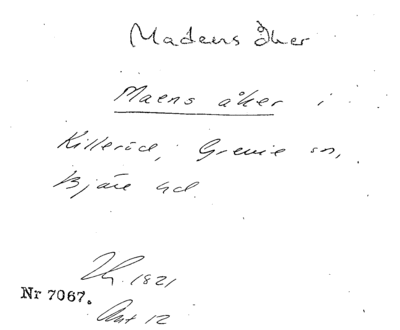 Madens åker
Maens åker i
Killeröd, Grevie sn,
Bjäre hd.
1821
Nr 7067.
Akt 12